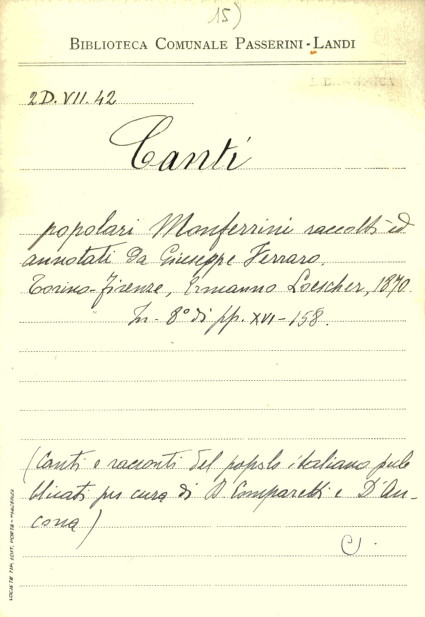 15)
BIBLIOTECA COMUNALE PASSERINI-LANDI
2D.VII.42
Canti
popolari Monferrini raccolti ed
annotati da Giuseppe Ferraro.
Torino-Firenze, Ermanno Loescher, 1870.
In-8° di pp. XVI-158.
(Canti e racconti del popolo italiano pub
blicati per cura di D. Comparetti e D'An-
cona)